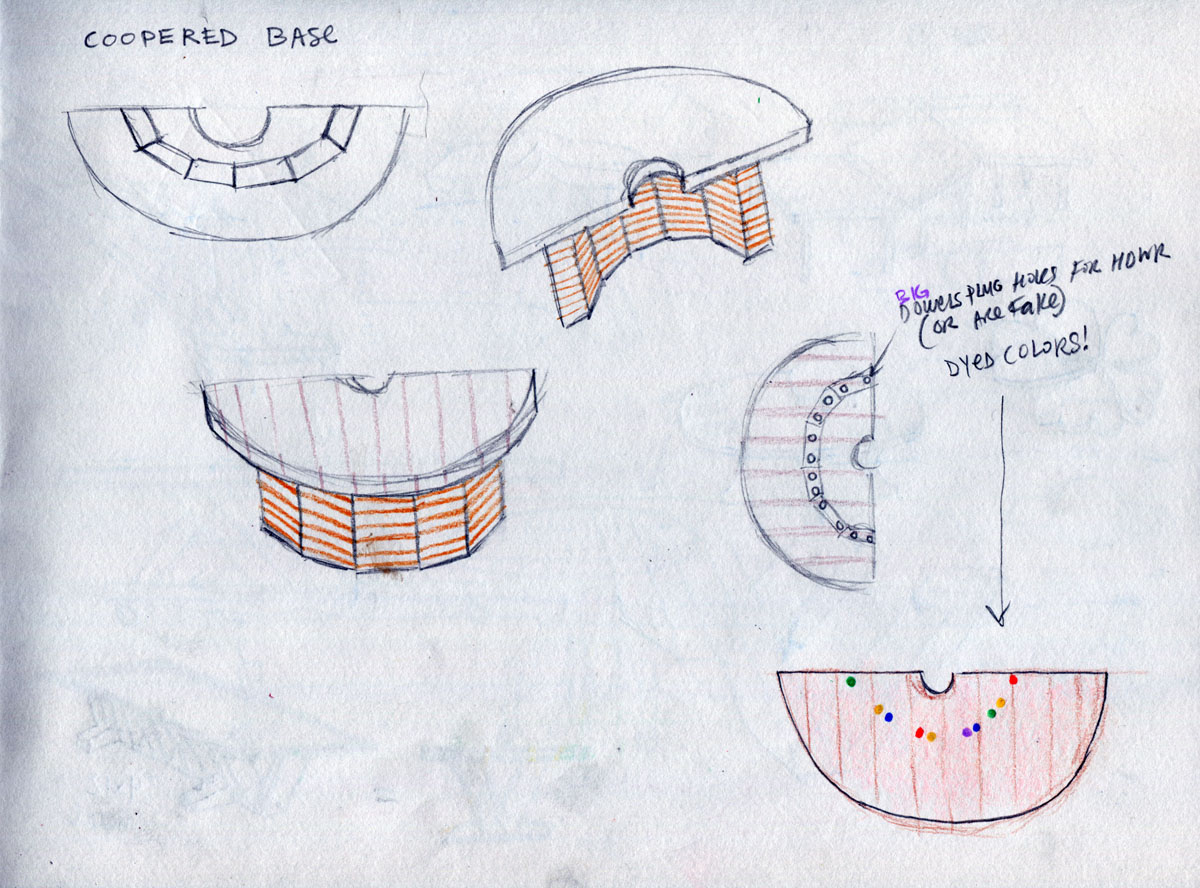 COOPERED BASE
BIG
DOWELS PLUG HOLES FOR HDWR
(OR ARE FAKE)
DYED COLORS!